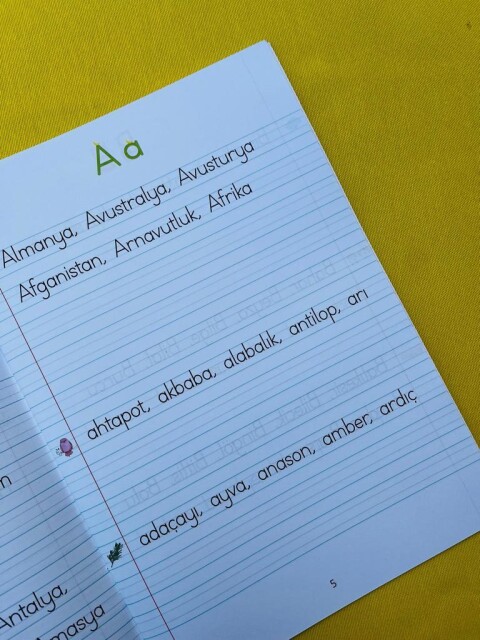 Aa
Almanya, Avustralya, Avusturya
Afganistan, Arnavutluk, Afrika
ahtapot, akbaba, alabalık, antilop, arı
adaçayı, ayva, anason, amber, ardıç
5
Antalya,